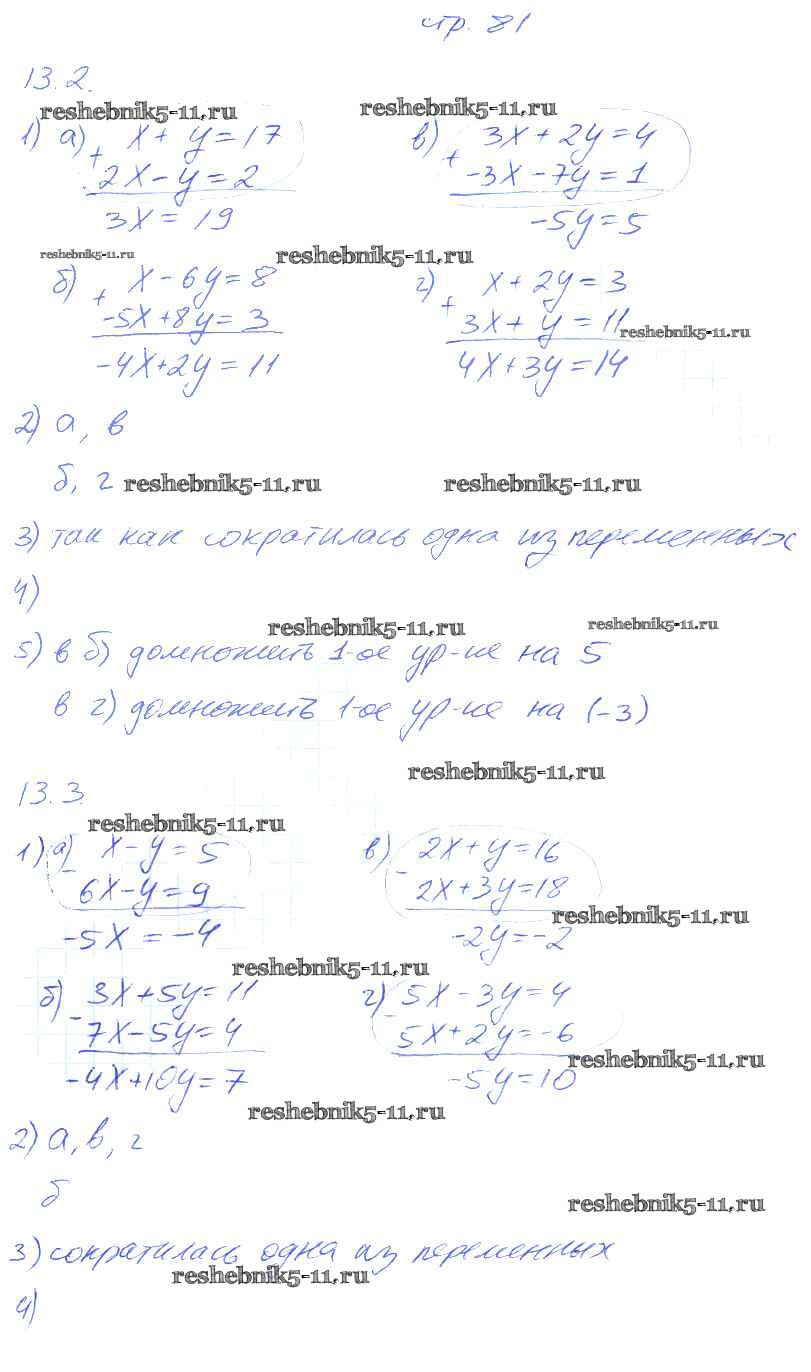 стр. 81
13.2.
reshebnik5-11.ru reshebnik5-11.ru
1) а) + x + y = 17 в) + 3x + 2y = 4
2x - y = 2 -3x - 7y = 1
3x = 19 -5y = 5
reshebnik5-11.ru reshebnik5-11.ru
б) + x - 6y = 8 г) + x + 2y = 3
-5x + 8y = 3 3x + y = 11 reshebnik5-11.ru
-4x + 2y = 11 4x + 3y = 14
2) а, в
б, г reshebnik5-11.ru reshebnik5-11.ru
3) так как сократилась одна из переменных
4)
reshebnik5-11.ru reshebnik5-11.ru
5) в б) домножить 1-ое ур-ие на 5
в г) домножить 1-ое ур-ие на (-3)
reshebnik5-11.ru
13.3.
reshebnik5-11.ru
1) а) - x - y = 5 в) - 2x + y = 16
6x - y = 9 2x + 3y = 18
reshebnik5-11.ru
-5x = -4 -2y = -2
reshebnik5-11.ru
б) - 3x + 5y = 11 г) - 5x - 3y = 4
7x - 5y = 4 5x + 2y = -6
reshebnik5-11.ru
-4x + 10y = 7 -5y = 10
reshebnik5-11.ru
2) а, в, г
б
reshebnik5-11.ru
3) сократилась одна из переменных
reshebnik5-11.ru
4)